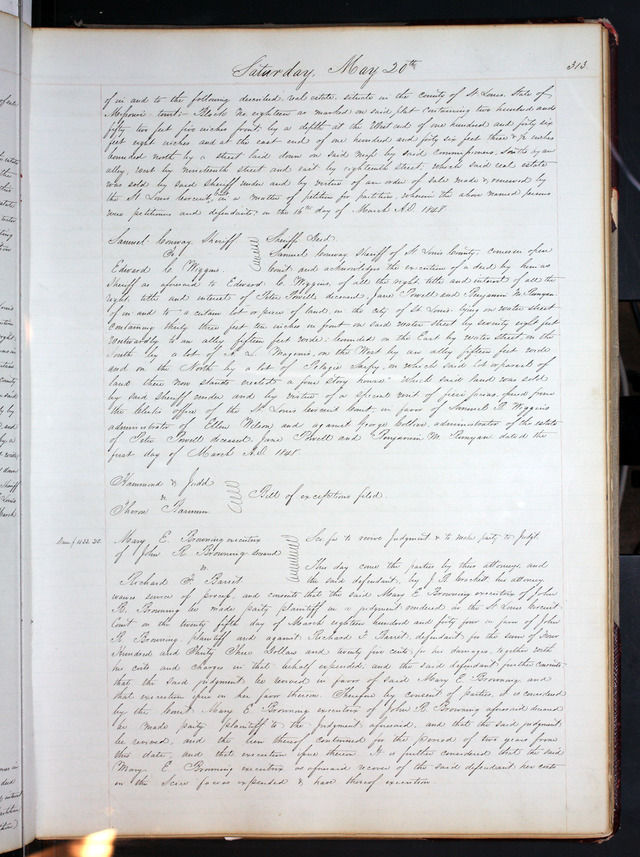 Saturday, May 20th
313
of in and to the following described real estate situate in the county of St Louis State of
Missouri towit. Block No eighteen as marked on said plat containing two hundred and
fifty two feet five inches front by a depth at the West end of one hundred and forty six
feet eight inches and at the east end of one hundred and forty six feet three & 1/2 inches
bounded north by a street laid down on said map by said Commissioners, South by an
alley, west by Nineteenth Street and east by eighteenth Street, which said real estate
was sold by said Sheriff under and by virtue of an order of sale made & renewed by
the St Louis Circuit Court in a matter of petition for partition, wherein the above named persons
were petitioners and defendants, on the 16th day of March A.D. 1848.
Samuel Conway Sheriff
To
Edward C. Wiggins
Sheriff Deed.
Samuel Conway Sheriff of St Louis County, comes in open
Court and acknowledges the execution of a deed by him as
Sheriff as aforesaid to Edward C. Wiggins, of all the right, title and interest of all the
right, title and interest of Peter Powell deceased, Jane Powell and Benjamin M. Runyan
of in and to a certain lot or piece of land, in the city of St Louis, lying on water street
Containing thirty three feet ten inches in front on said water street by seventy eight feet
westwardly to an alley fifteen feet wide, bounded on the East by water Street, on the
South by a lot of A. L. Magenis, on the West by an alley fifteen feet wide
and on the North by a lot of Pelagie Sarpy, on which said lot or parcel of
land there now stands erected a four story house. Which said land was sold
by said Sheriff under and by virtue of a special writ of fieri facias, issued from
the Clerks office of the St Louis Circuit Court, in favor of Samuel B. Wiggins
administrator of Ellen Nelson and against George Collier, administrator of the estate
of Peter Powell deceased, Jane Powell and Benjamin M. Runyan dated the
first day of March A.D. 1848.
Hammond & Judd
&
Theron Barnum
Bill of exceptions filed.
Mary E. Browning executrix
of John R. Browning deceased
vs.
Richard F. Barret
Sci fa to revive Judgment & to make party to Judgt.
This day come the parties by their attorneys and
the said defendant, by J. B. Crockett his attorney
waives service of process, and consents that the said Mary E Browning executrix of John
R. Browning be made party plaintiff in a judgment rendered in the St Louis Circuit
Court on the twenty fifth day of March eighteen hundred and forty four in favor of John
R Browning plaintiff and against Richard F. Barret, defendant, for the sum of Four
Hundred and Thirty Three Dollars and twenty five cents, for his damages, together with
his costs and charges in that behalf expended, and the said defendant further consents
that the said judgment be revived in favor of said Mary E Browning and
that execution issue in her favor therein. Therefore by consent of parties, it is considered
by the Court, Mary E. Browning executrix of John R Browning aforesaid deceased
be made party plaintiff to the judgment aforesaid, and that the said judgment
be revived, and the lien thereof continued for the period of two years from
this date, and that execution issue therein. It is further considered that the said
Mary E Browning executrix as aforesaid recover of the said defendant her costs
in the Scire facias expended & have thereof execution